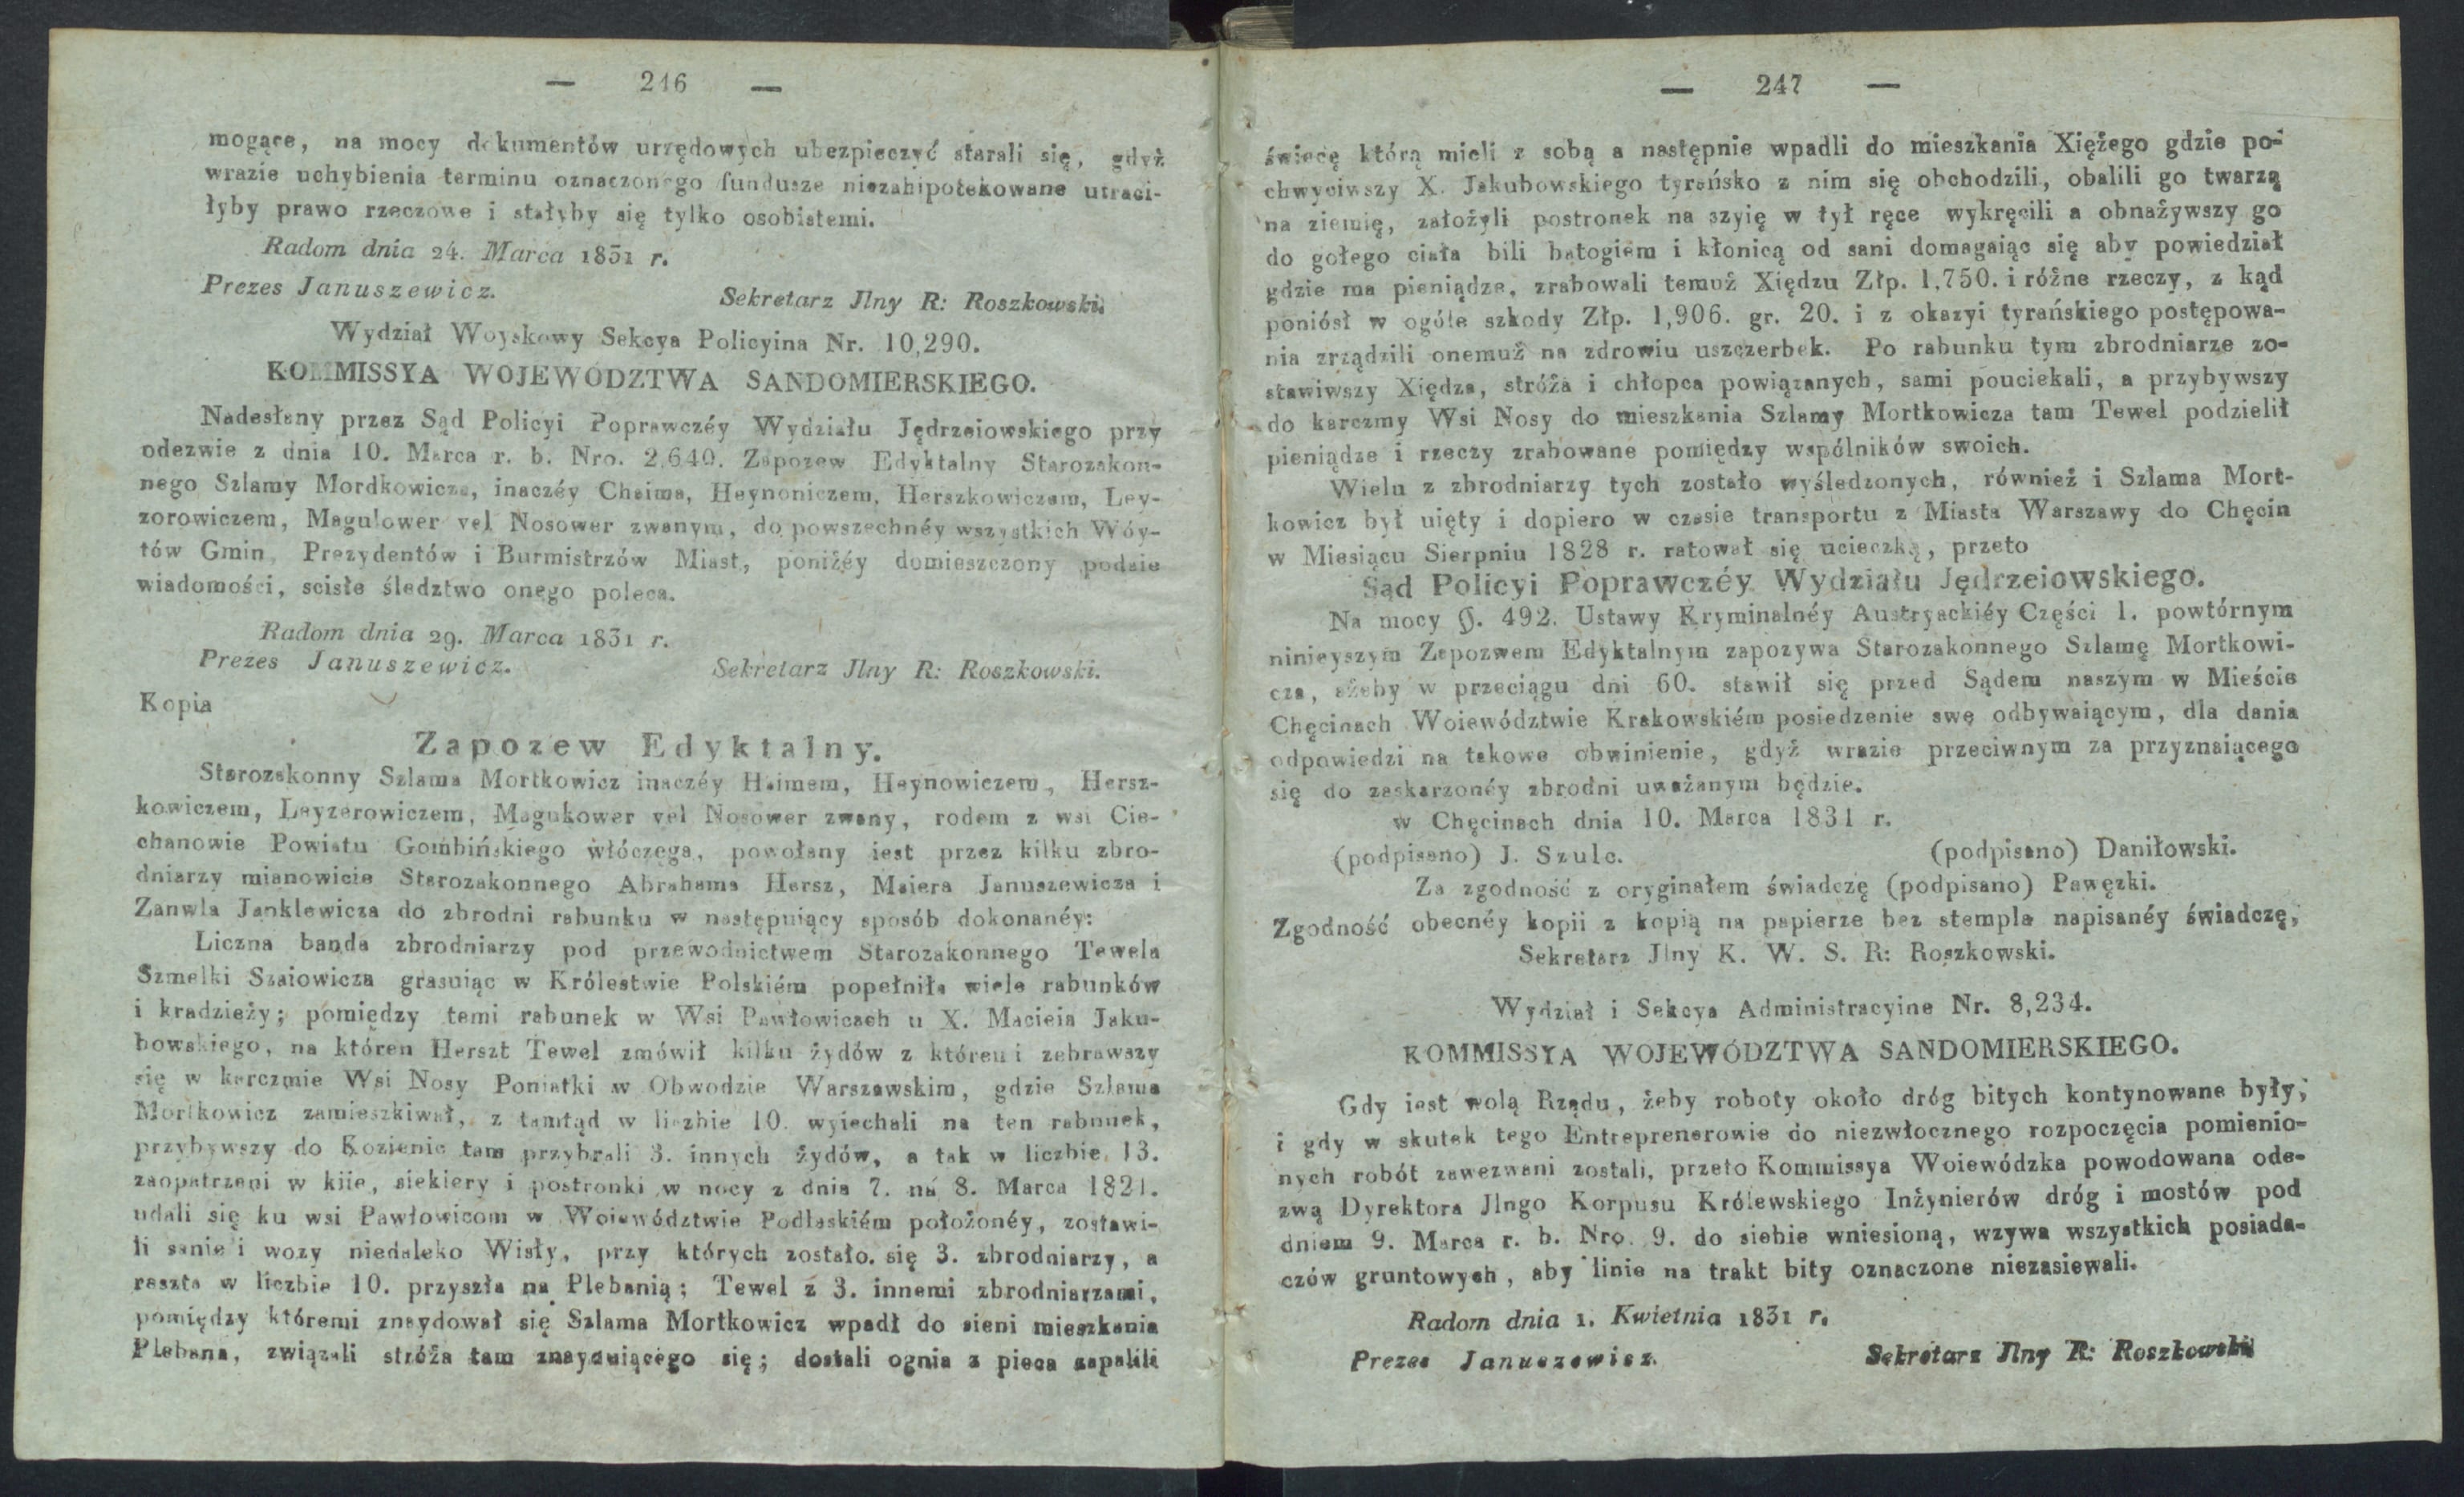 — 246 —
mogące, na mocy dokumentów urzędowych ubezpieczyć starali się, gdyż
wrazie uchybienia terminu oznaczonego fundusze niezahipotekowane utraci-
łyby prawo rzeczowe i stałyby się tylko osobistemi.
Radom dnia 24. Marca 1831 r.
Prezes Januszewicz. Sekretarz Jlny R: Roszkowski.
Wydział Woyskowy Sekcya Policyina Nr. 10,290.
KOMMISSYA WOJEWÓDZTWA SANDOMIERSKIEGO.
Nadesłany przez Sąd Policyi Poprawczéy Wydziału Jędrzeiowskiego przy
odezwie z dnia 10. Marca r. b. Nro. 2,640. Zapozew Edyktalny Starozakon-
nego Szlamy Mordkowicza, inaczéy Chaima, Heynoniczem, Herszkowiczem, Ley-
zorowiczem, Magulower vel Nosower zwanym, do powszechnéy wszystkich Wóy-
tów Gmin, Prezydentów i Burmistrzów Miast, poniżéy domieszczony podaie
wiadomości, scisłe śledztwo onego poleca.
Radom dnia 29. Marca 1831 r.
Prezes Januszewicz. Sekretarz Jlny R: Roszkowski.
Kopia
Zapozew Edyktalny.
Starozakonny Szlama Mortkowicz inaczéy Haimem, Heynowiczem, Hersz-
kowiczem, Leyzerowiczem, Magukower vel Nosower zwany, rodem z wsi Cie-
chanowie Powiatu Gombińskiego włóczęga, powołany iest przez kilku zbro-
dniarzy mianowicie Starozakonnego Abrahama Hersz, Maiera Januszewicza i
Zanwla Janklewicza do zbrodni rabunku w następuiący sposób dokonanéy:
Liczna banda zbrodniarzy pod przewodnictwem Starozakonnego Tewela
Szmelki Szaiowicza grasuiąc w Królestwie Polskiém popełniła wiele rabunków
i kradzieży; pomiędzy temi rabunek w Wsi Pawłowicach u X. Macieia Jaku-
bowskiego, na któren Herszt Tewel zmówił kilku żydów z któremi zebrawszy
się w karczmie Wsi Nosy Poniatki w Obwodzie Warszawskim, gdzie Szlama
Mortkowicz zamieszkiwał, z tamtąd w liczbie 10. wyiechali na ten rabunek,
przybywszy do Kozienic tam przybrali 3. innych żydów, a tak w liczbie 13.
zaopatrzeni w kiie, siekiery i postronki w nocy z dnia 7. na 8. Marca 1821.
udali się ku wsi Pawłowicom w Woiewództwie Podlaskiém położonéy, zostawi-
li sanie i wozy niedaleko Wisły, przy których zostało. się 3. zbrodniarzy, a
reszta w liczbie 10. przyszła na Plebanią; Tewel z 3. innemi zbrodniarzami,
pomiędzy któremi znaydował się Szlama Mortkowicz wpadł do sieni mieszkania
Plebana, związali stróża tam znayduiącego się; dostali ognia z pieca zapalili
— 247 —
świecę którą mieli z sobą a następnie wpadli do mieszkania Xiężego gdzie po-
chwyciwszy X. Jakubowskiego tyrańsko z nim się obchodzili, obalili go twarzą
na ziemię, założyli postronek na szyię w tył ręce wykręcili a obnażywszy go
do gołego ciała bili batogiem i kłonicą od sani domagaiąc się aby powiedział
gdzie ma pieniądze, zrabowali temuż Xiędzu Złp. 1,750. i różne rzeczy, z kąd
poniósł w ogóle szkody Złp. 1,906. gr. 20. i z okazyi tyrańskiego postępowa-
nia zrządzili onemuż na zdrowiu uszczerbek. Po rabunku tym zbrodniarze zo-
stawiwszy Xiędza, stróża i chłopca powiązanych, sami pouciekali, a przybywszy
do karczmy Wsi Nosy do mieszkania Szlamy Mortkowicza tam Tewel podzielił
pieniądze i rzeczy zrabowane pomiędzy wspólników swoich.
Wielu z zbrodniarzy tych zostało wyśledzonych, również i Szlama Mort-
kowicz był uięty i dopiero w czasie transportu z Miasta Warszawy do Chęcin
w Miesiącu Sierpniu 1828 r. ratował się ucieczką, przeto
Sąd Policyi Poprawczéy Wydziału Jędrzeiowskiego.
Na mocy §. 492. Ustawy Kryminalnéy Austryackiéy Części 1. powtórnym
ninieyszym Zapozwem Edyktalnym zapozywa Starozakonnego Szlamę Mortkowi-
cza, ażeby w przeciągu dni 60. stawił się przed Sądem naszym w Mieście
Chęcinach Woiewództwie Krakowskiém posiedzenie swe odbywaiącym, dla dania
odpowiedzi na takowe obwinienie, gdyż wrazie przeciwnym za przyznaiącego
się do zaskarzonéy zbrodni uważanym będzie.
w Chęcinach dnia 10. Marca 1831 r.
(podpisano) J. Szulc. (podpisano) Daniłowski.
Za zgodność z oryginałem świadczę (podpisano) Pawęzki.
Zgodność obecnéy kopii z kopią na papierze bez stempla napisanéy świadczę,
Sekretarz Jlny K. W. S. R: Roszkowski.
Wydział i Sekcya Administracyine Nr. 8,234.
KOMMISSYA WOJEWÓDZTWA SANDOMIERSKIEGO.
Gdy iest wolą Rządu, żeby roboty około dróg bitych kontynowane były,
i gdy w skutek tego Entreprenerowie do niezwłocznego rozpoczęcia pomienio-
nych robót zawezwani zostali, przeto Kommissya Woiewódzka powodowana ode-
zwą Dyrektora Jlngo Korpusu Królewskiego Inżynierów dróg i mostów pod
dniem 9. Marca r. b. Nro. 9. do siebie wniesioną, wzywa wszystkich posiada-
czów gruntowych, aby linie na trakt bity oznaczone niezasiewali.
Radom dnia 1. Kwietnia 1831 r.
Prezes Januszewicz. Sekretarz Jlny R: Roszkowski